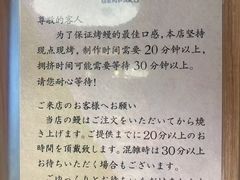 尊敬的客人
为了保证烤鳗的最佳口感，本店坚持
现点现烤，制作时间需要 20 分钟以上，
拥挤时间可能需要等待 30 分钟以上。
请您耐心等待！
ご来店のお客様へお願い
当店の鰻はご注文をいただいてから焼
き上げます。ご提供までに20分以上のお
時間を頂戴致します。混雑時は30分以上
お待ちいただく場合もございます。